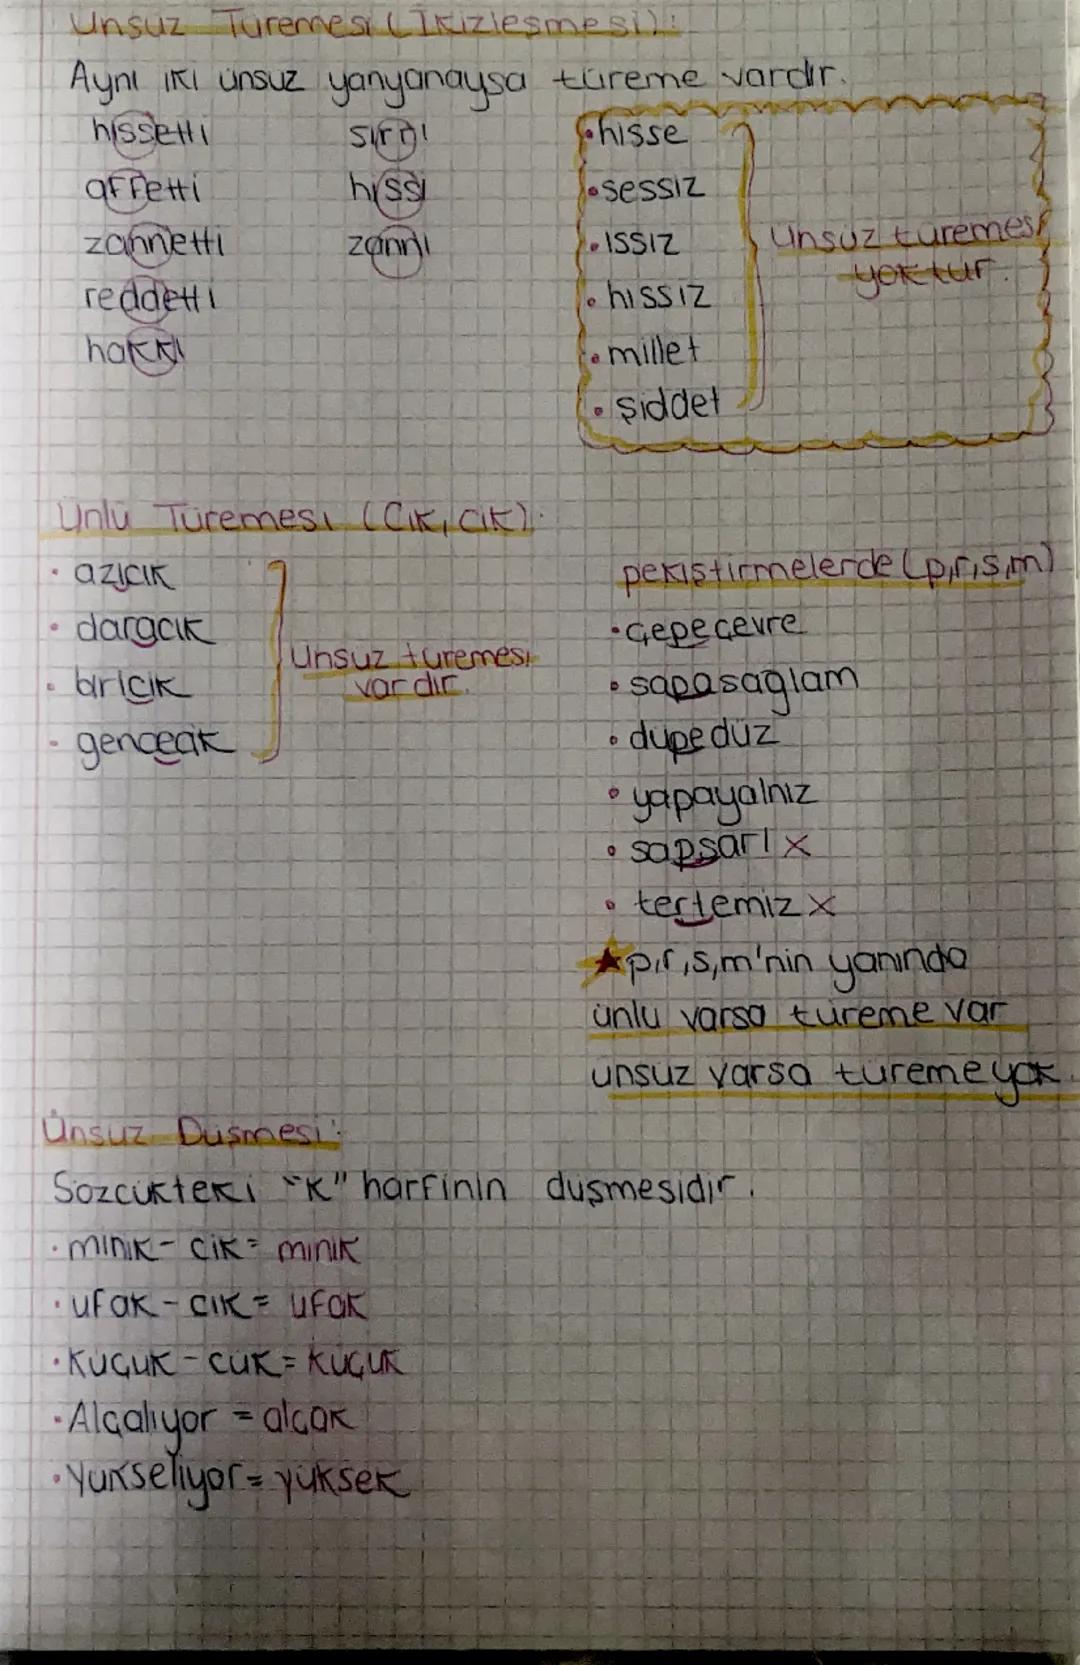 Ünsüz Türemesi (İkizleşmesi):
Aynı iki ünsüz yanyanaysa türeme vardır.
hissetti
affetti
zannetti
reddetti
hakkı
sırrı
hissi
zannı
• hisse
• sessiz
• ıssız
• hissiz
• millet
• şiddet
Ünsüz türemesi
yoktur.
Ünlü Türemesi (Cık, cik):
• azıcık
• dargcık
• biricik
• gencecik
Ünsüz türemesi
vardır.
pekiştirmelerde (p,r,s,m)
• çepeçevre
• sapasağlam
• düpedüz
• yapayalnız
• sapsarı x
• tertemiz x
★ p,r,s,m'nin yanında
ünlü varsa türeme var
ünsüz varsa türeme yok.
Ünsüz Düşmesi:
Sözcükteki "K" harfinin düşmesidir.
• minik - cik = minik
• ufak - cık = ufak
• Küçük - cük = küçük
• Alçalıyor = alçak
• Yükseliyor = yüksek